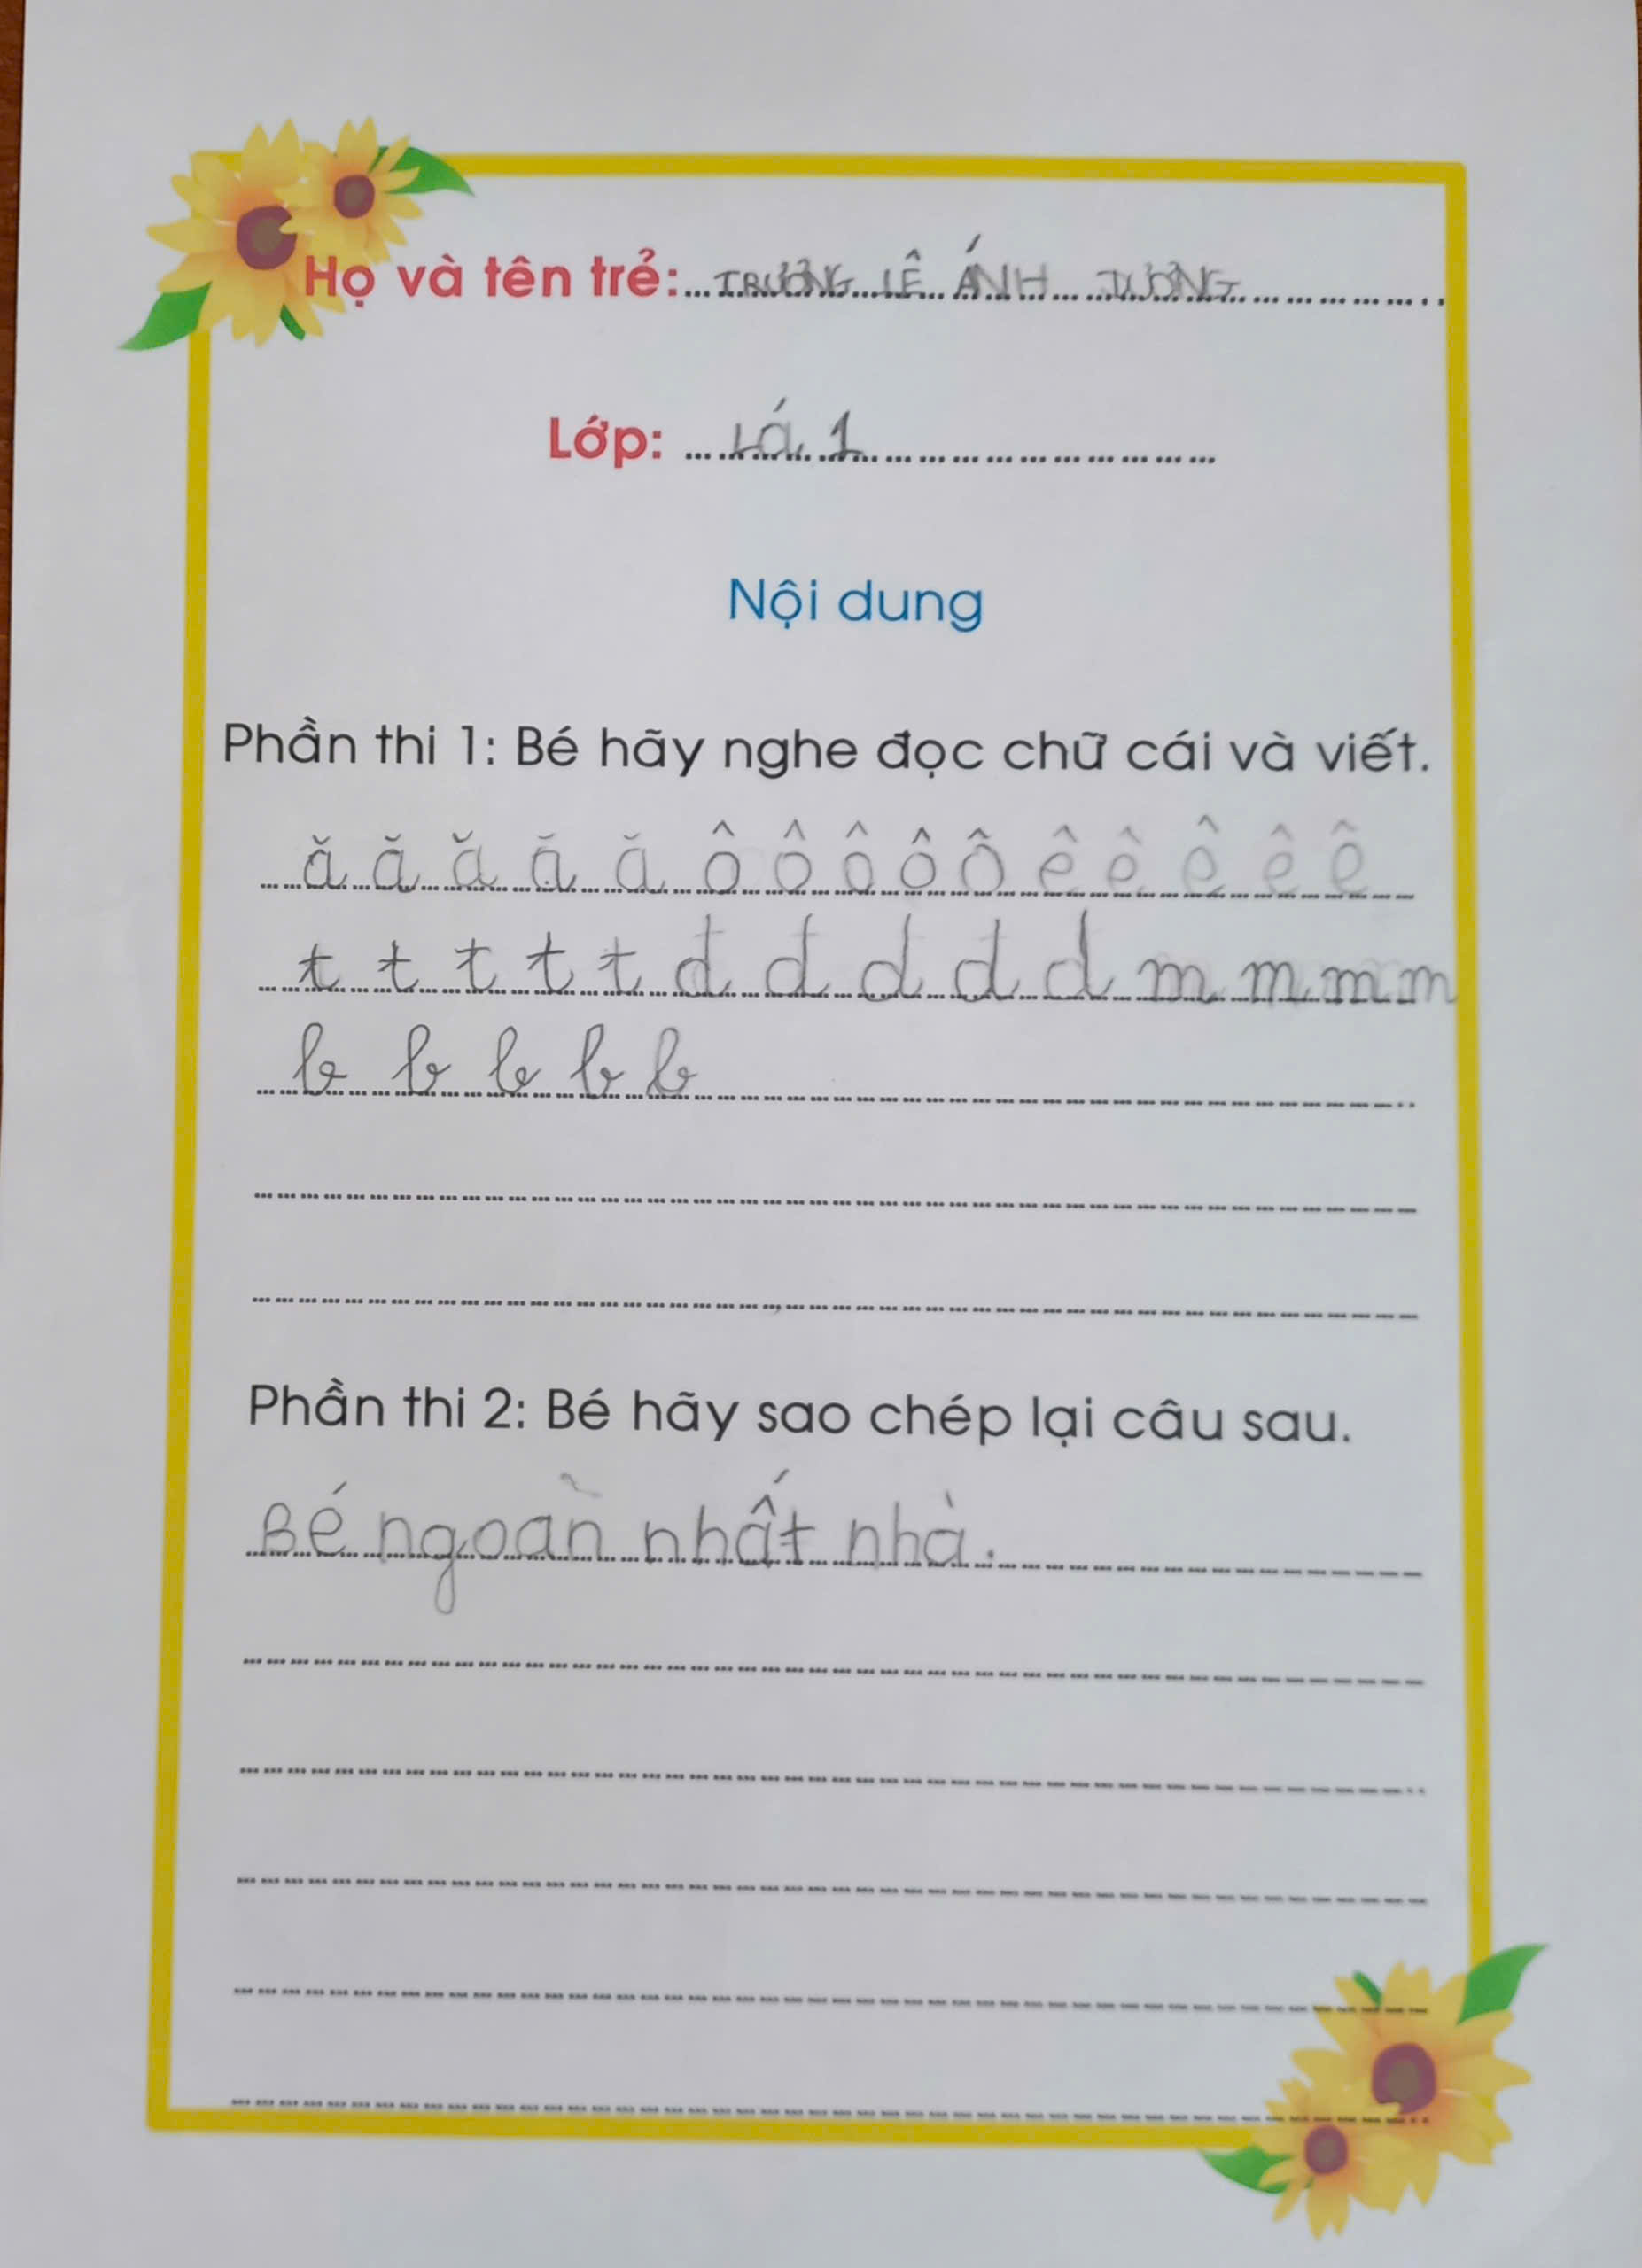 Họ và tên trẻ: TRƯƠNG LÊ ÁNH DƯƠNG
Lớp: Lá 1
Nội dung
Phần thi 1: Bé hãy nghe đọc chữ cái và viết.
ă ă ă ă ă ô ô ô ô ô ê ê ê ê ê
t t t t t đ d d d d m m m m
b b b b b
Phần thi 2: Bé hãy sao chép lại câu sau.
Bé ngoan nhất nhà.